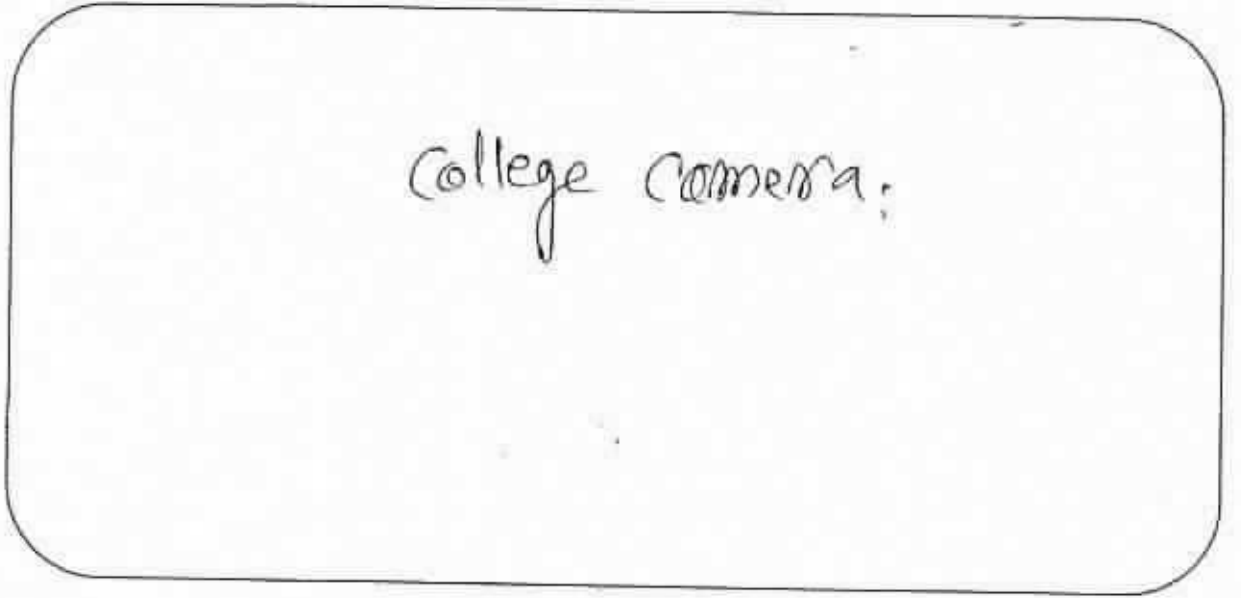 College Camera.